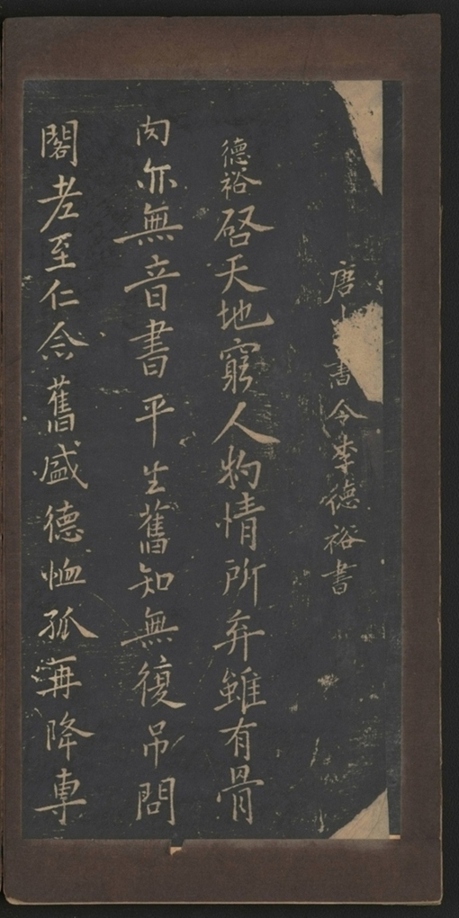 唐書令李德裕書
德裕啓天地窮人物情所弃雖有骨
肉亦無音書平生舊知無復吊問
閣老至仁念舊盛德恤孤再降專